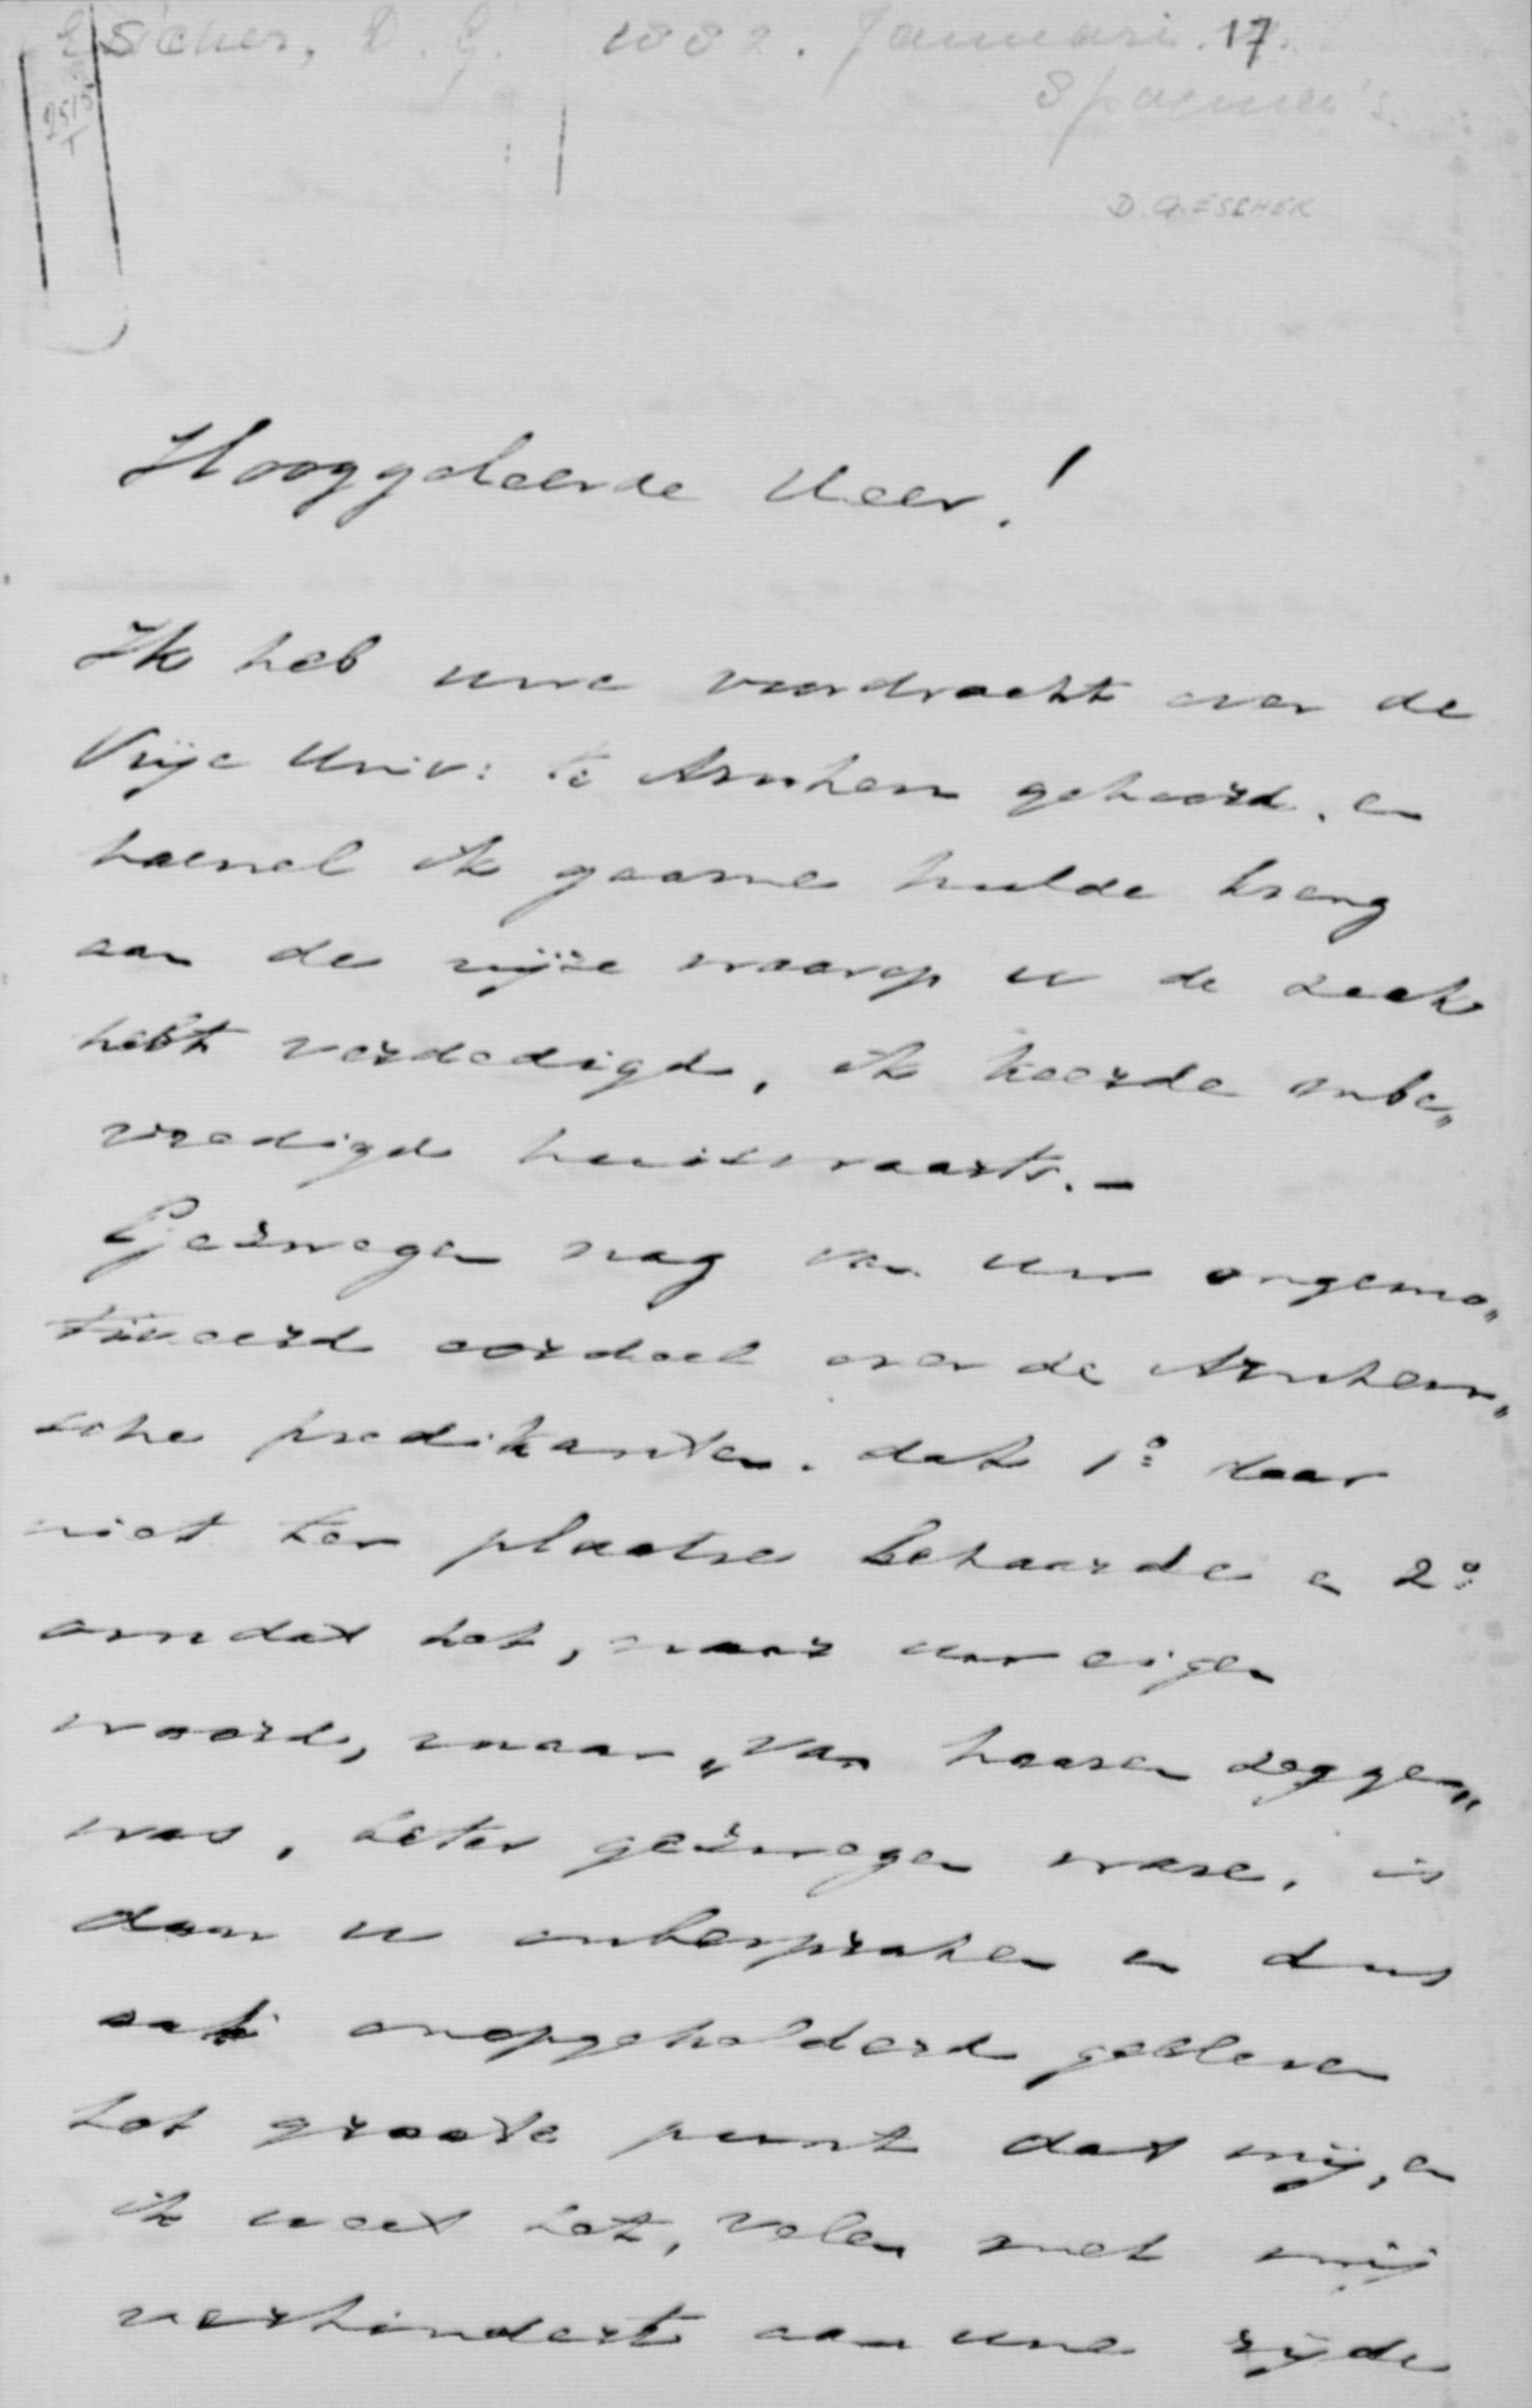 Escher, D. G. 1882. Januari 17.
2515
D. G. ESCHER
Hooggeleerde Heer!
Ik heb uwe voordracht over de
Vrije Univ: te Arnhem gehoord, en
hoewel ik gaarne hulde breng
aan de wijze waarop u de zaak
hebt verdedigd, ik keerde onbe„
vredigd huiswaarts. —
Gezwegen nog van uw ongemo„
tiveerd oordeel over de Arnhem„
sche predikanten, dat 1º daar
niet ter plaatse behoorde en 2º
omdat het, naar uw eigen
woord, maar „van hooren zeggen„
was, beter gezwegen ware, is
door u onbesproken en dus
ook onopgehelderd gebleven
het groote punt dat mij, en
ik weet het, velen met mij
verhindert aan uwe zijde